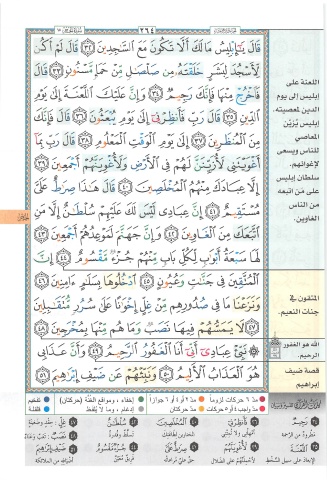 ٢٦٤
قَالَ يَٰٓإِبْلِيسُ مَا لَكَ أَلَّا تَكُونَ مَعَ ٱلسَّٰجِدِينَ ٣٢ قَالَ لَمْ أَكُن
لِّأَسْجُدَ لِبَشَرٍ خَلَقْتَهُۥ مِن صَلْصَٰلٍ مِّنْ حَمَإٍ مَّسْنُونٍ ٣٣ قَالَ
فَٱخْرُجْ مِنْهَا فَإِنَّكَ رَجِيمٌ ٣٤ وَإِنَّ عَلَيْكَ ٱللَّعْنَةَ إِلَىٰ يَوْمِ
ٱلدِّينِ ٣٥ قَالَ رَبِّ فَأَنظِرْنِىٓ إِلَىٰ يَوْمِ يُبْعَثُونَ ٣٦ قَالَ فَإِنَّكَ
مِنَ ٱلْمُنظَرِينَ ٣٧ إِلَىٰ يَوْمِ ٱلْوَقْتِ ٱلْمَعْلُومِ ٣٨ قَالَ رَبِّ بِمَآ
أَغْوَيْتَنِى لَأُزَيِّنَنَّ لَهُمْ فِى ٱلْأَرْضِ وَلَأُغْوِيَنَّهُمْ أَجْمَعِينَ ٣٩
إِلَّا عِبَادَكَ مِنْهُمُ ٱلْمُخْلَصِينَ ٤٠ قَالَ هَٰذَا صِرَٰطٌ عَلَىَّ
مُسْتَقِيمٌ ٤١ إِنَّ عِبَادِى لَيْسَ لَكَ عَلَيْهِمْ سُلْطَٰنٌ إِلَّا مَنِ
ٱتَّبَعَكَ مِنَ ٱلْغَاوِينَ ٤٢ وَإِنَّ جَهَنَّمَ لَمَوْعِدُهُمْ أَجْمَعِينَ ٤٣
لَهَا سَبْعَةُ أَبْوَٰبٍ لِّكُلِّ بَابٍ مِّنْهُمْ جُزْءٌ مَّقْسُومٌ ٤٤ إِنَّ
ٱلْمُتَّقِينَ فِى جَنَّٰتٍ وَعُيُونٍ ٤٥ ٱدْخُلُوهَا بِسَلَٰمٍ ءَامِنِينَ ٤٦
وَنَزَعْنَا مَا فِى صُدُورِهِم مِّنْ غِلٍّ إِخْوَٰنًا عَلَىٰ سُرُرٍ مُّتَقَٰبِلِينَ
٤٧ لَا يَمَسُّهُمْ فِيهَا نَصَبٌ وَمَا هُم مِّنْهَا بِمُخْرَجِينَ ٤٨
نَبِّئْ عِبَادِىٓ أَنِّىٓ أَنَا ٱلْغَفُورُ ٱلرَّحِيمُ ٤٩ وَأَنَّ عَذَابِى
هُوَ ٱلْعَذَابُ ٱلْأَلِيمُ ٥٠ وَنَبِّئْهُمْ عَن ضَيْفِ إِبْرَٰهِيمَ ٥١
اللعنة على
إبليس إلى يوم
الدين لمعصيته.
إبليس يُزَيِّن
المعاصي
للناس ويسعى
لإغوائهم.
سلطان إبليس
على من اتبعه
من الناس
الغاوين.
المتقون في
جنات النعيم.
الله هو الغفور
الرحيم.
قصة ضيف
إبراهيم
مدّ ٦ حركات لزوماً
مدّ ٢ أو ٤ أو ٦ جوازاً
إخفاء، ومواقع الغنّة (حركتان)
تفخيم
مدّ حركتان
إدغام، وما لا يُلفظ
قلقلة